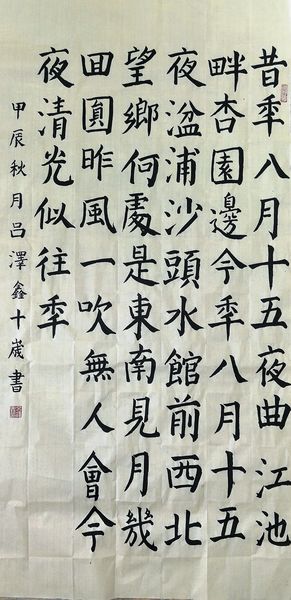 昔秊八月十五夜曲江池
畔杏園邊今秊八月十五
夜湓浦沙頭水館前西北
望鄉何處是東南見月幾
囬圓昨風一吹無人會今
夜清光似往秊
甲辰秋月吕澤鑫十歲書